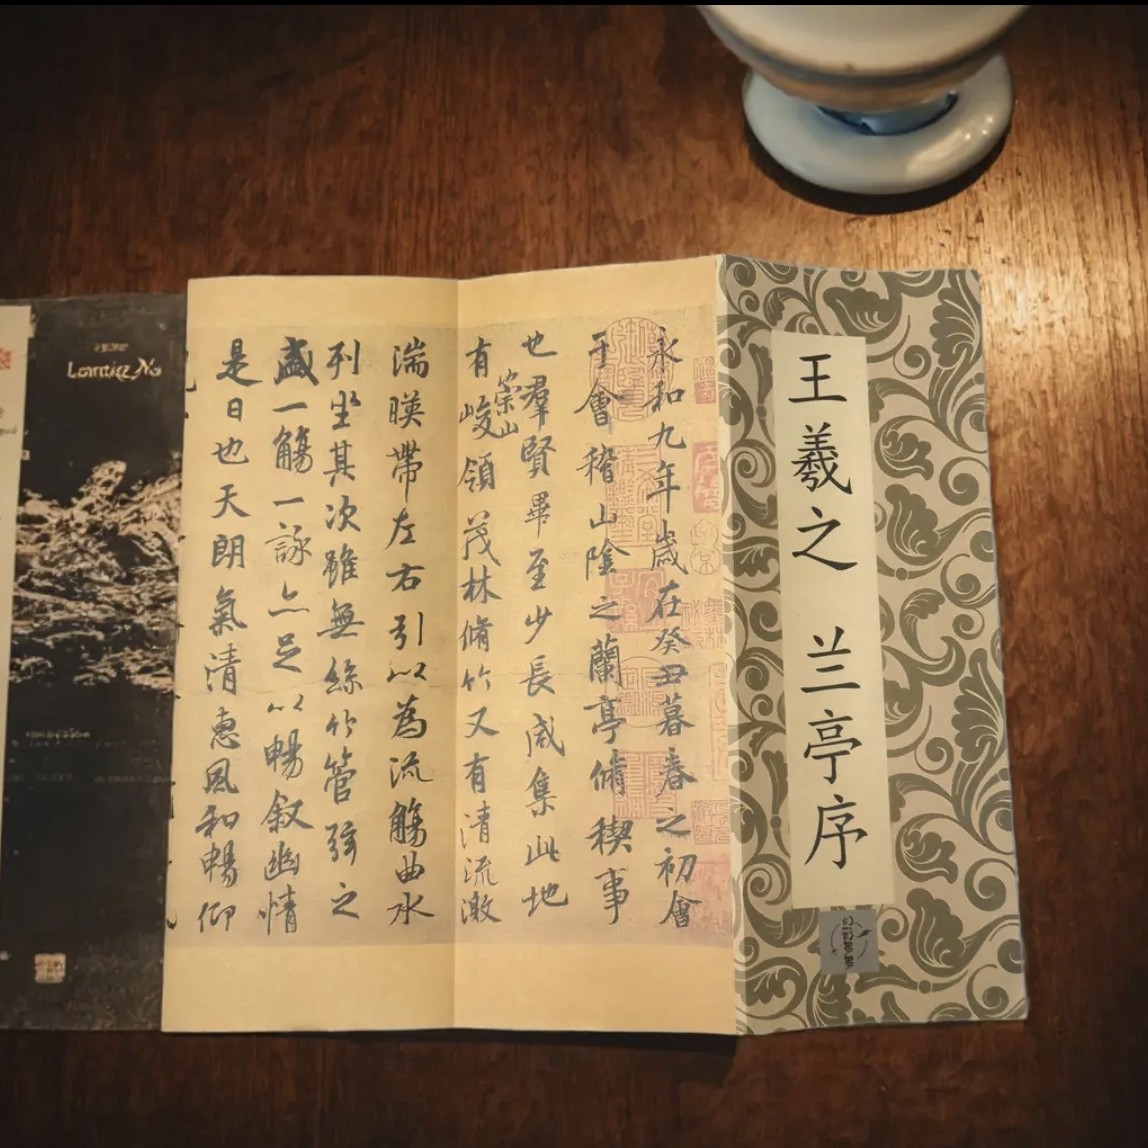 王羲之 兰亭序
永和九年歲在癸丑暮春之初會
于會稽山陰之蘭亭脩稧事
也羣賢畢至少長咸集此地
有崇山峻領茂林脩竹又有清流激
湍暎帶左右引以為流觴曲水
列坐其次雖無絲竹管弦之
盛一觴一詠亦足以暢叙幽情
是日也天朗氣清惠風和暢仰